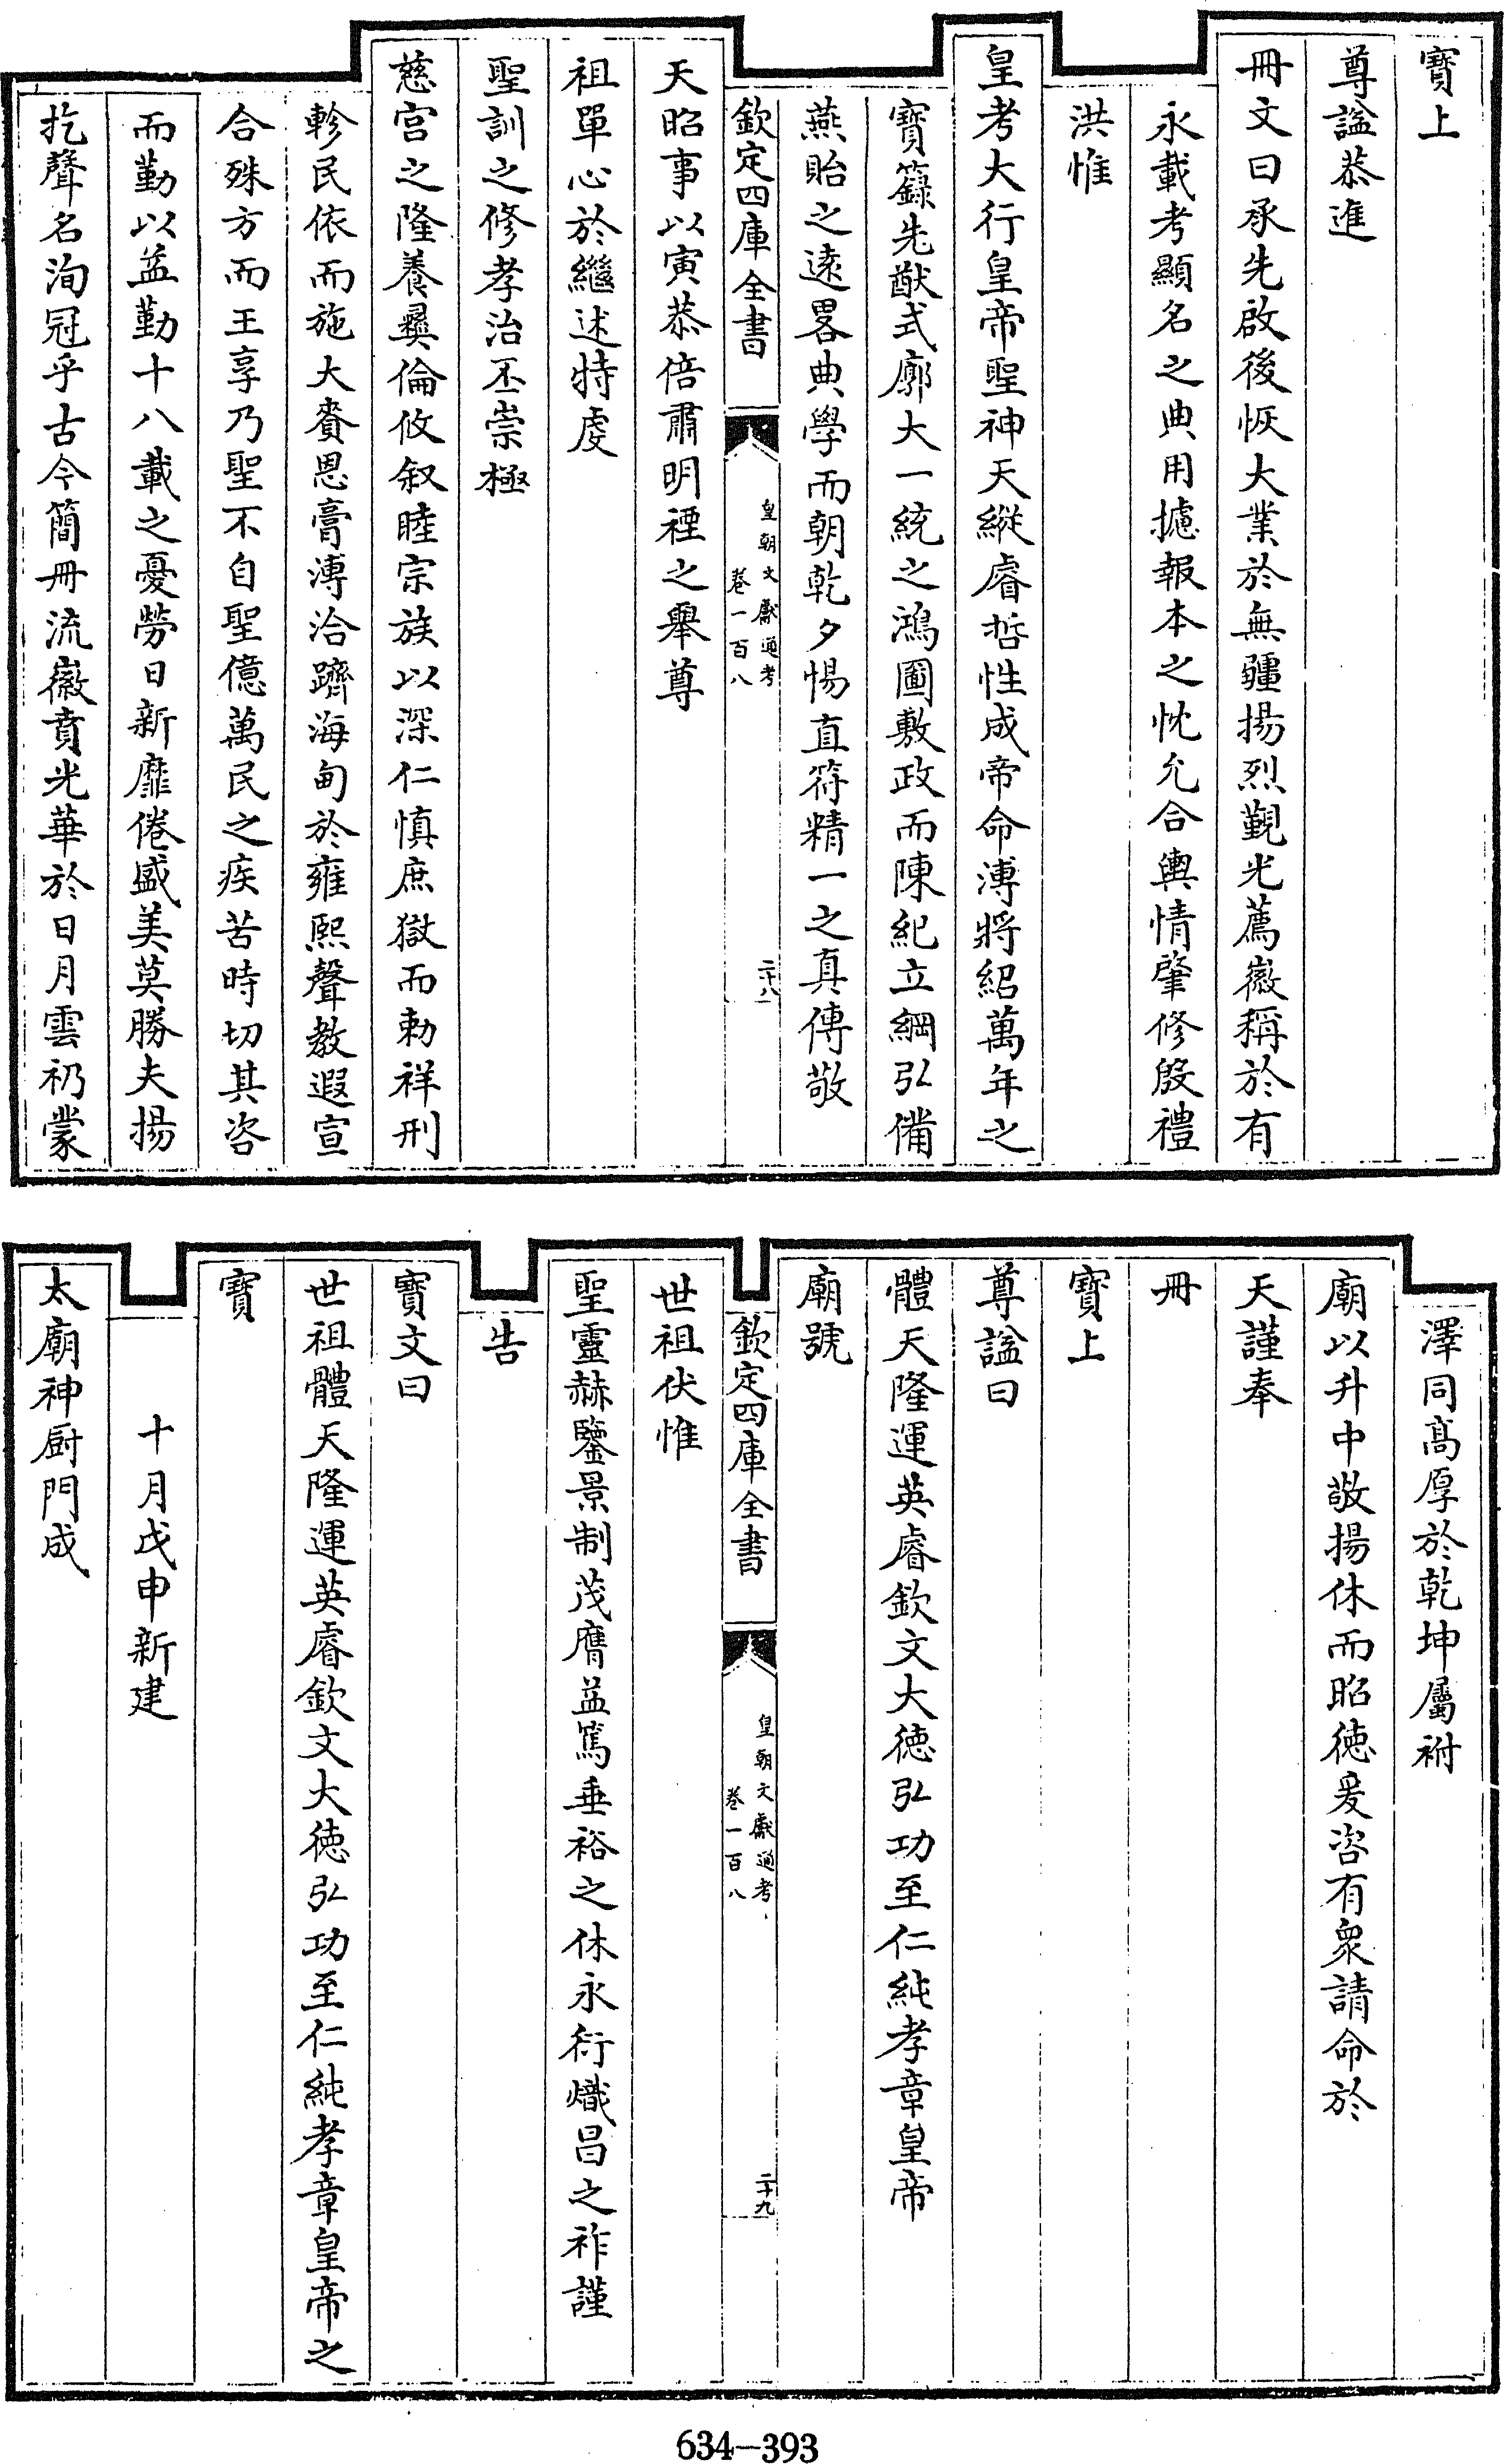 寶上
尊諡恭進
冊文曰承先啟後恢大業於無疆揚烈覲光薦徽稱於有
永載考顯名之典用攄報本之忱允合輿情肇修殷禮
洪惟
皇考大行皇帝聖神天縱睿哲性成帝命溥將紹萬年之
寶籙先猷式廓大一統之鴻圖敷政而陳紀立綱弘備
燕貽之逺畧典學而朝乾夕惕直符精一之真傳敬
欽定四庫全書
皇朝文獻通考
卷一百八
二十八
天昭事以寅恭倍肅明禋之舉尊
祖單心於繼述特虔
聖訓之修孝治丕崇極
慈宮之隆養彞倫攸叙睦宗族以深仁慎庶獄而勅祥刑
軫民依而施大賚恩膏溥洽躋海甸於雍熙聲教遐宣
合殊方而王享乃聖不自聖億萬民之疾苦時切其咨
而勤以益勤十八載之憂勞日新靡倦盛美莫勝夫揚
扢聲名洵冠乎古今簡冊流徽賁光華於日月雲礽蒙
澤同高厚於乾坤屬祔
廟以升中敬揚休而昭徳爰咨有衆請命於
天謹奉
冊
寶上
尊諡曰
體天隆運英睿欽文大徳弘功至仁純孝章皇帝
廟號
欽定四庫全書
皇朝文獻通考
卷一百八
二十九
世祖伏惟
聖靈赫鑒景制茂膺益篤垂裕之休永衍熾昌之祚謹
告
寶文曰
世祖體天隆運英睿欽文大徳弘功至仁純孝章皇帝之
寶
十月戊申新建
太廟神厨門成
634-393